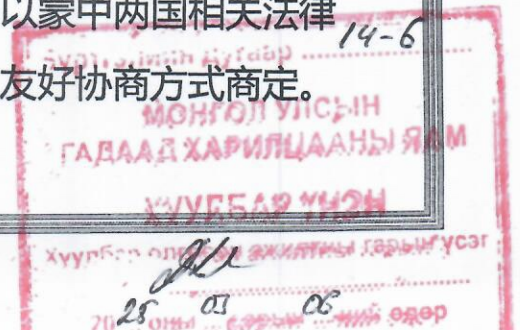 以蒙中两国相关法律
14-6
友好协商方式商定。
МОНГОЛ УЛСЫН
ГАДААД ХАРИЛЦААНЫ ЯАМ
ХУУЛБАР ҮНЭН
Хуулбар олгосон ажилтны гарын үсэг
2025 оны 03 06 өдөр